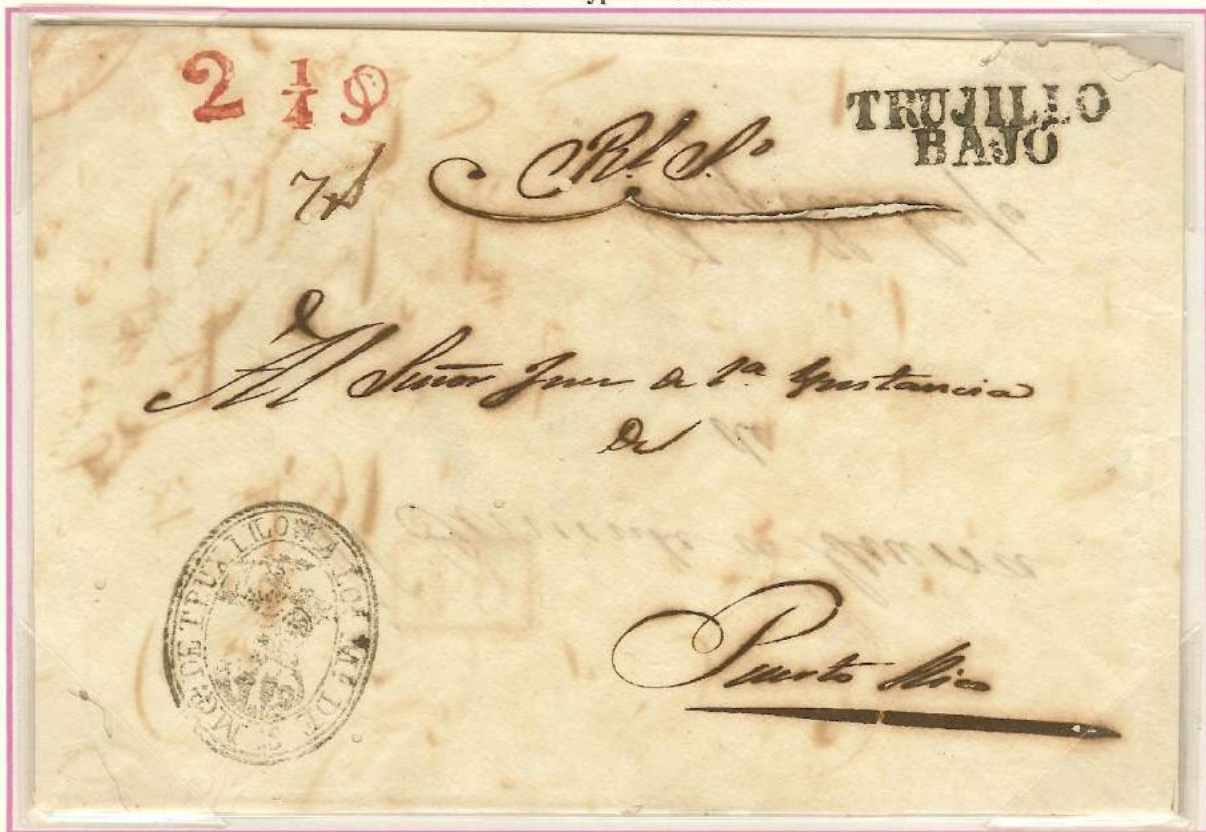 2 1/4 S
TRUJILLO
BAJO
Rl. So.
Al Señor Juez de 1a. Ynstancia
de
Puerto Rico
DE TRUJILLO